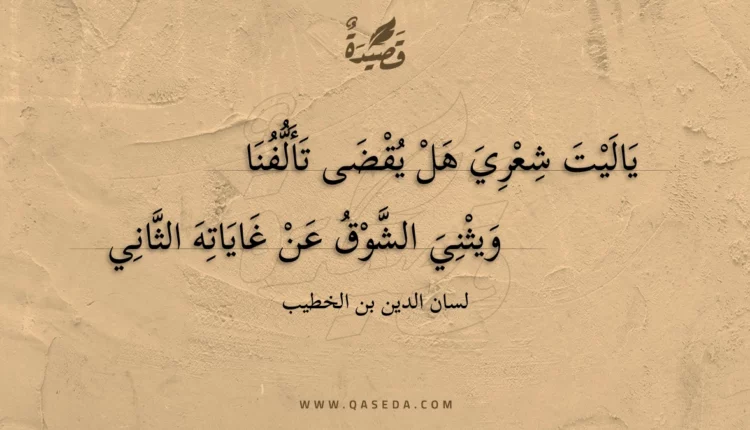 قَصِيْدَةٌ
يَالَيْتَ شِعْرِيَ هَلْ يُقْضَى تَأَلُّفُنَا
وَيثْنِيَ الشَّوْقُ عَنْ غَايَاتِهَ الثَّانِي
لسان الدين بن الخطيب
WWW.QASEDA.COM